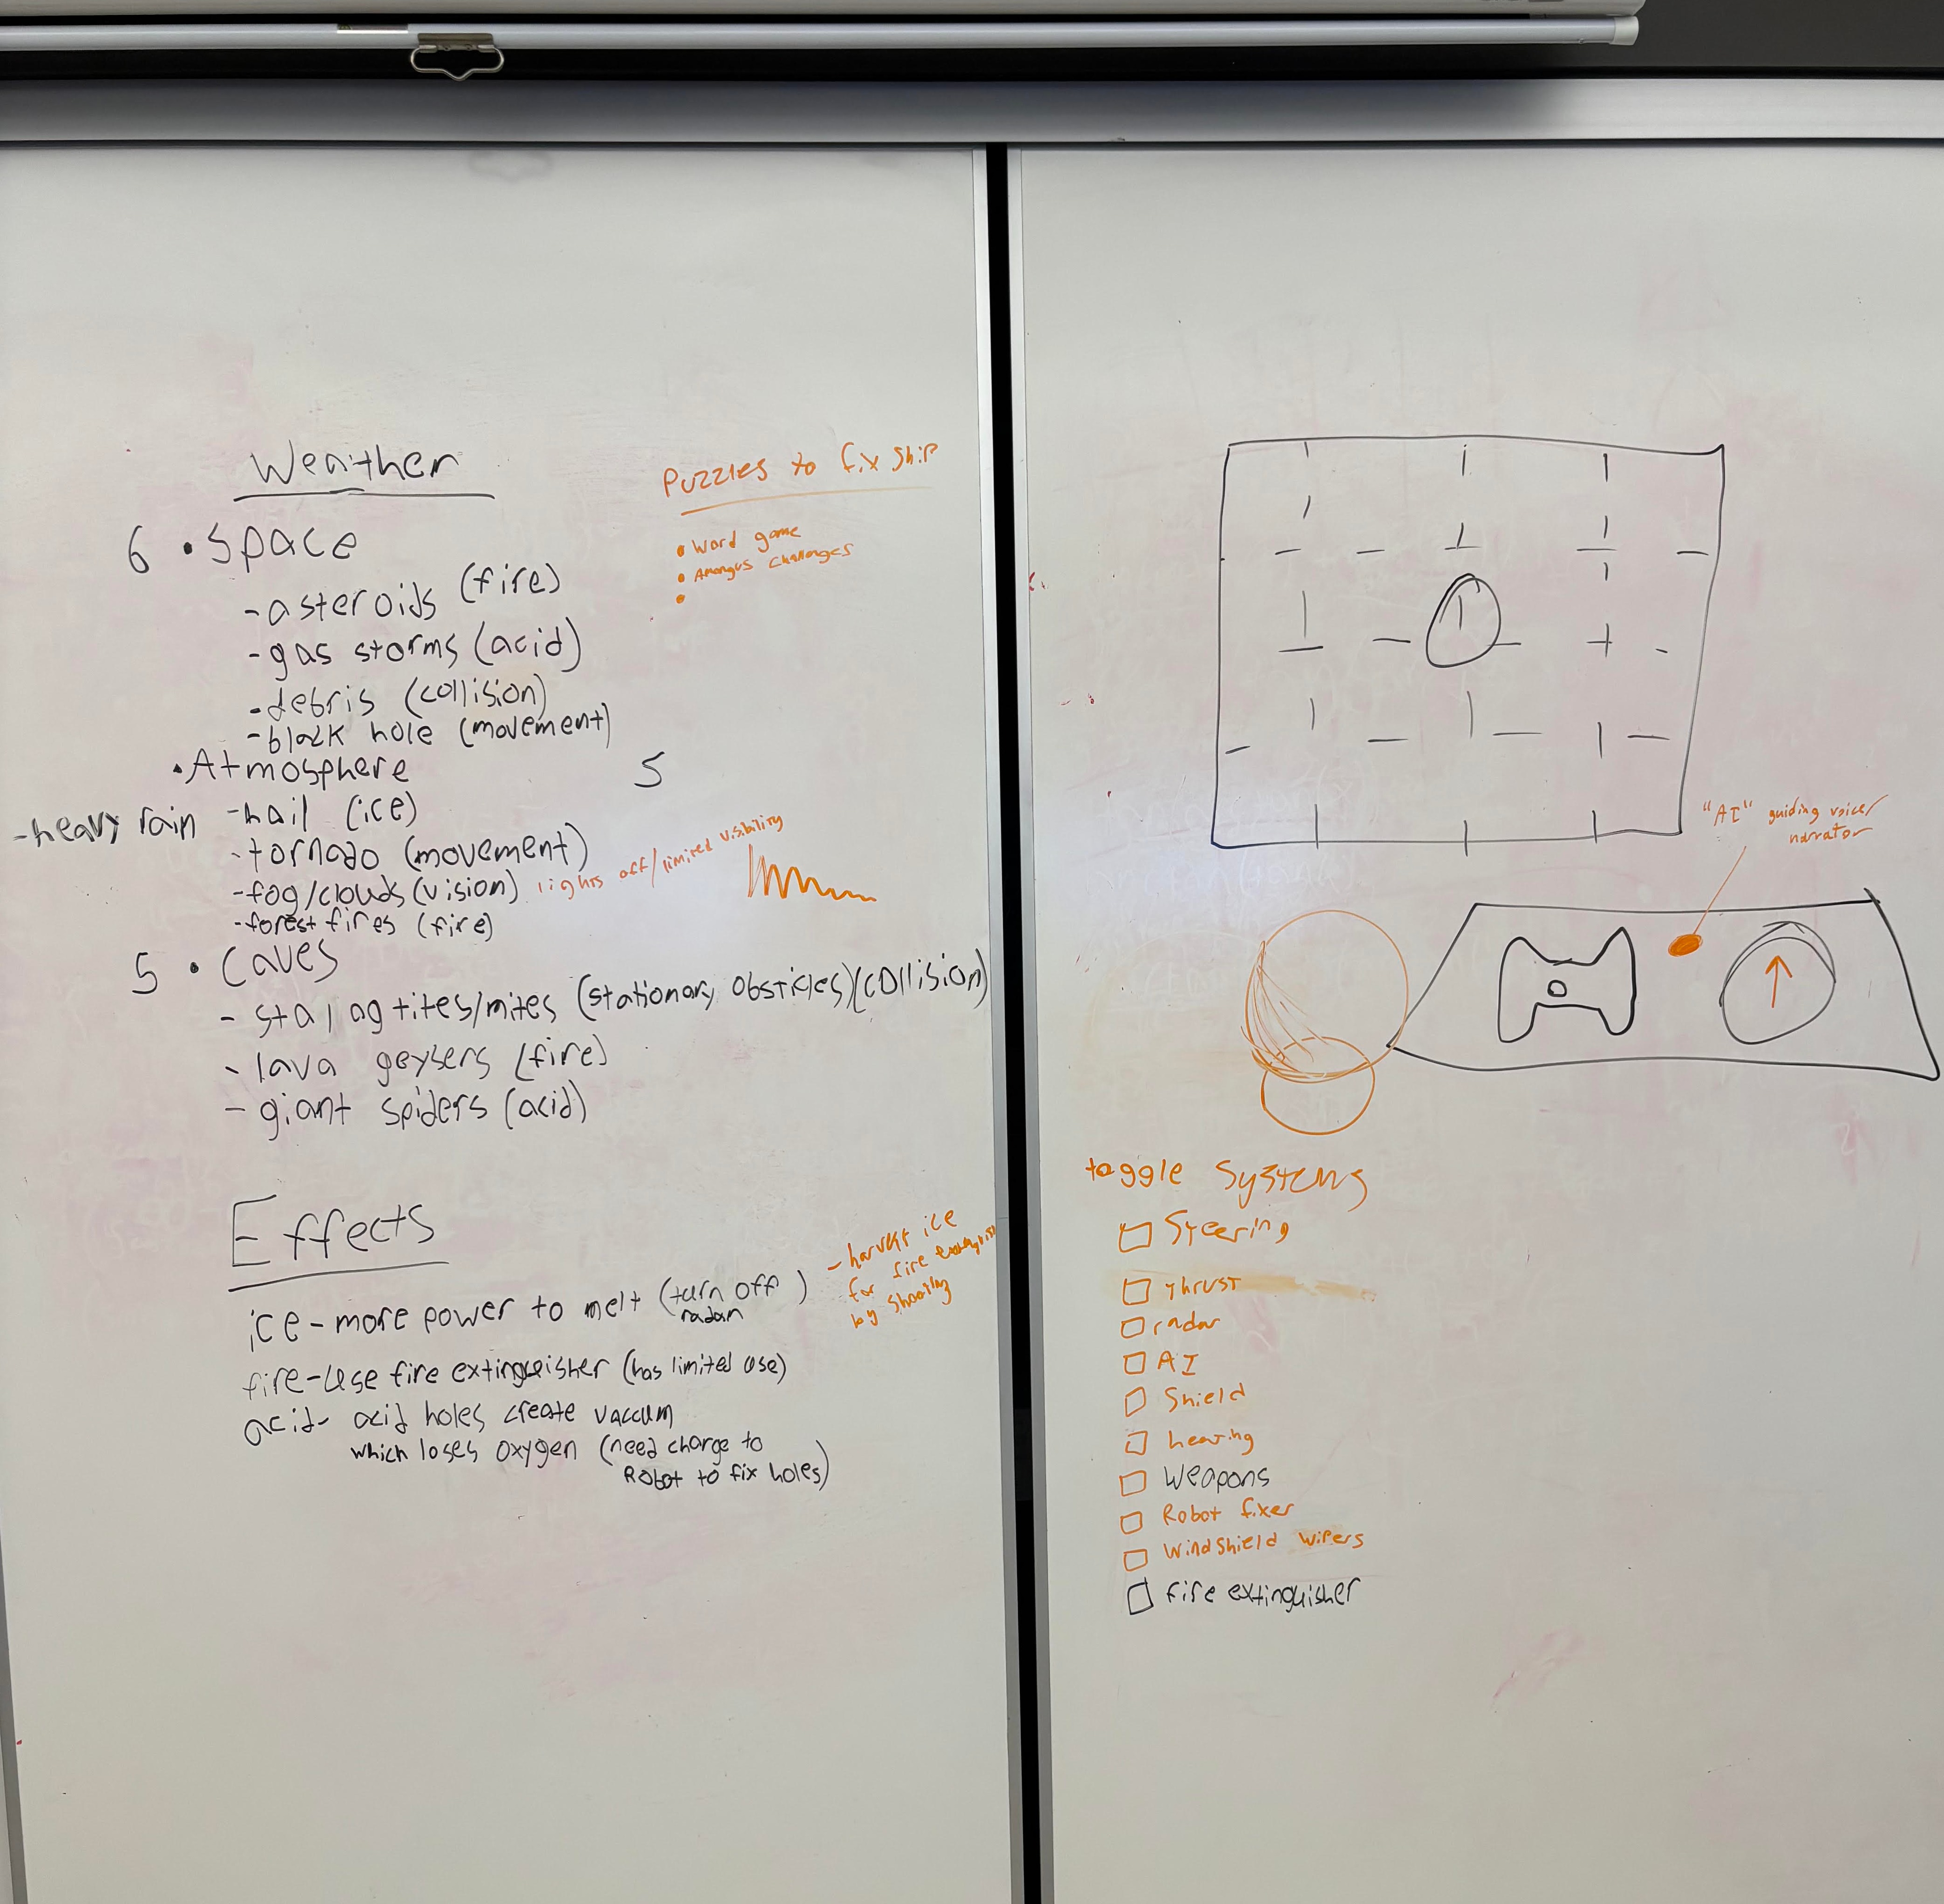 Weather
6 • Space
- asteroids (fire)
- gas storms (acid)
- debris (collision)
- black hole (movement)
• Atmosphere
5
- heavy rain
- hail (ice)
- tornado (movement)
- fog/clouds (vision) lights off/limited visibility
- forest fires (fire)
5 • Caves
- stalagtites/mites (stationary obsticles)(collision)
- lava geysers (fire)
- giant spiders (acid)
Puzzles to fix ship
• Word game
• Amongus challenges
•
Effects
ice - more power to melt (turn off
radar)
- harvest ice
for fire
by shooting
fire - Use fire extinguisher (has limited use)
acid - acid holes create vaccum
which loses oxygen (need charge to
Robot to fix holes)
"AI" guiding voice/
narrator
toggle Systems
Steering
Thrust
radar
AI
Shield
heating
Weapons
Robot fixer
Windshield wipers
fire extinguisher